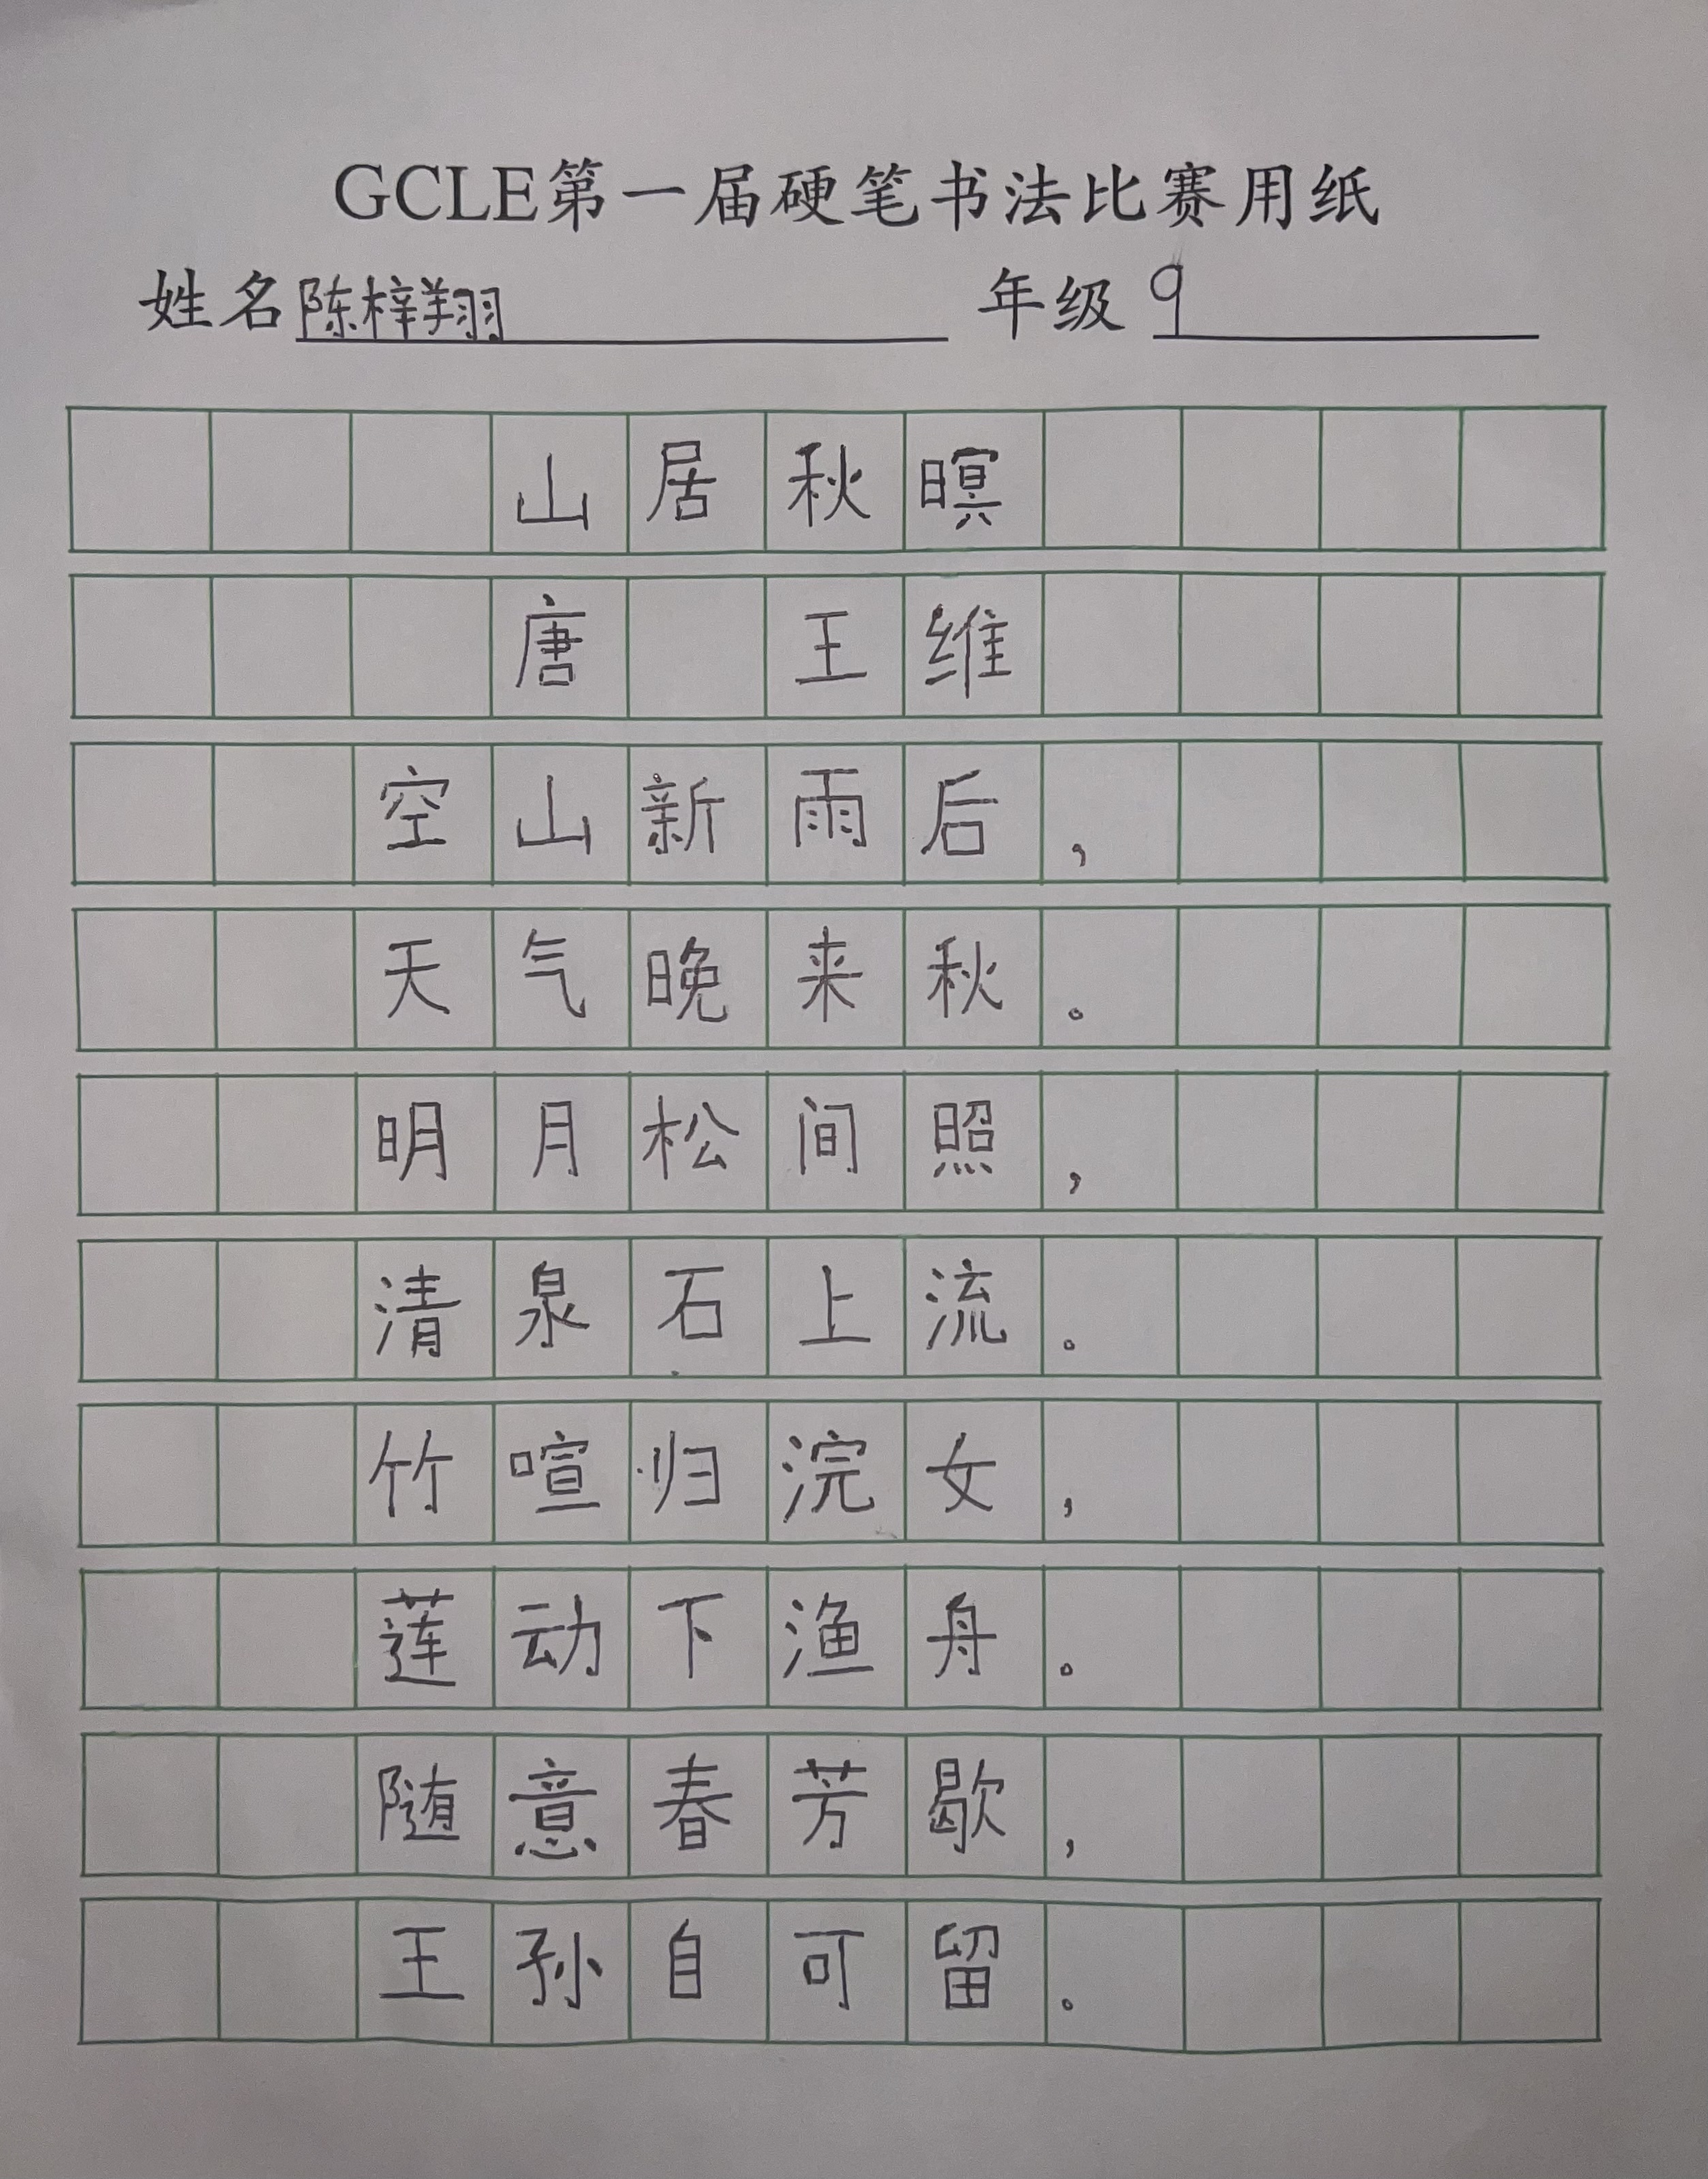 GCLE第一届硬笔书法比赛用纸
姓名陈梓翔 年级 9
山居秋暝
唐 王维
空山新雨后，
天气晚来秋。
明月松间照，
清泉石上流。
竹喧归浣女，
莲动下渔舟。
随意春芳歇，
王孙自可留。